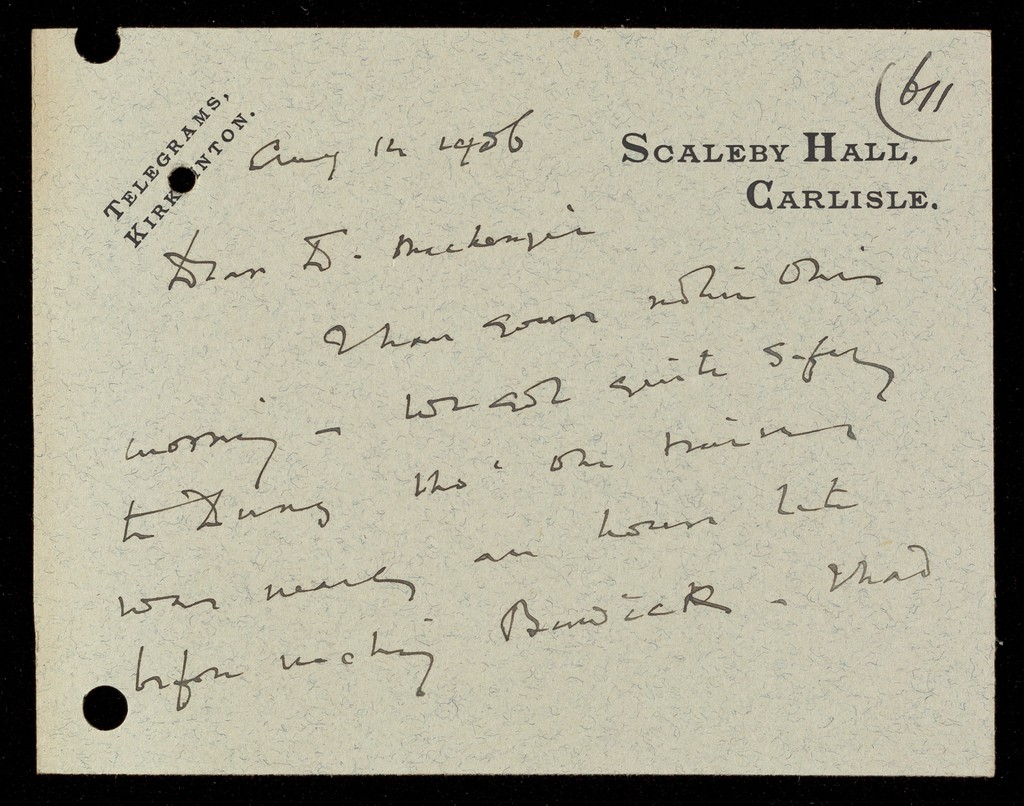 (611
TELEGRAMS,
KIRKLINTON.
SCALEBY HALL,
CARLISLE.
Aug 12 1906
Dear Dr. Mackenzie
I have your note this
morning – We got quite safely
to Duns tho' the train
was nearly an hour late
before reaching Berwick – I had